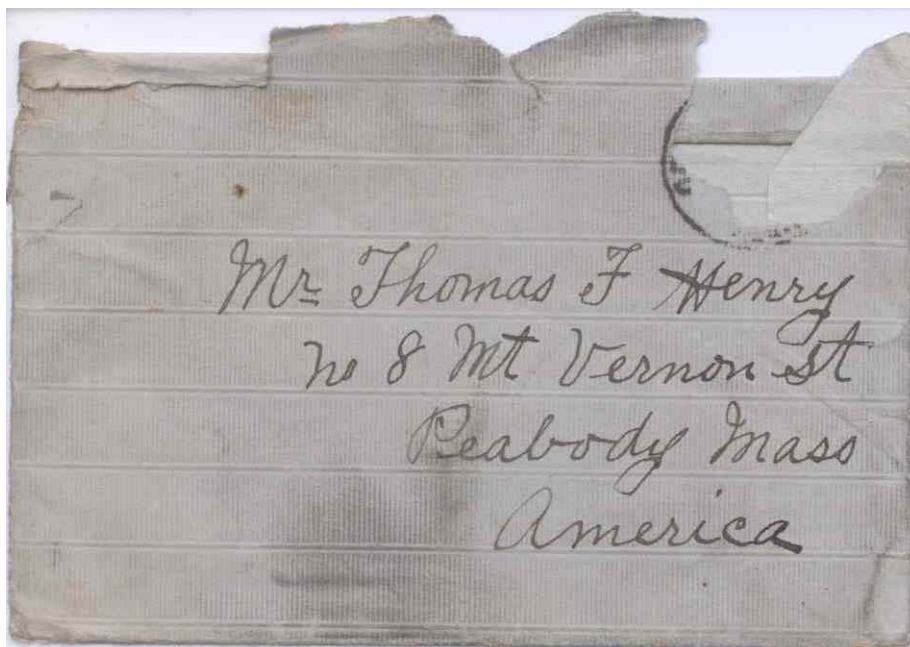 Mr Thomas F Henry
No 8 Mt Vernon St
Peabody Mass
America